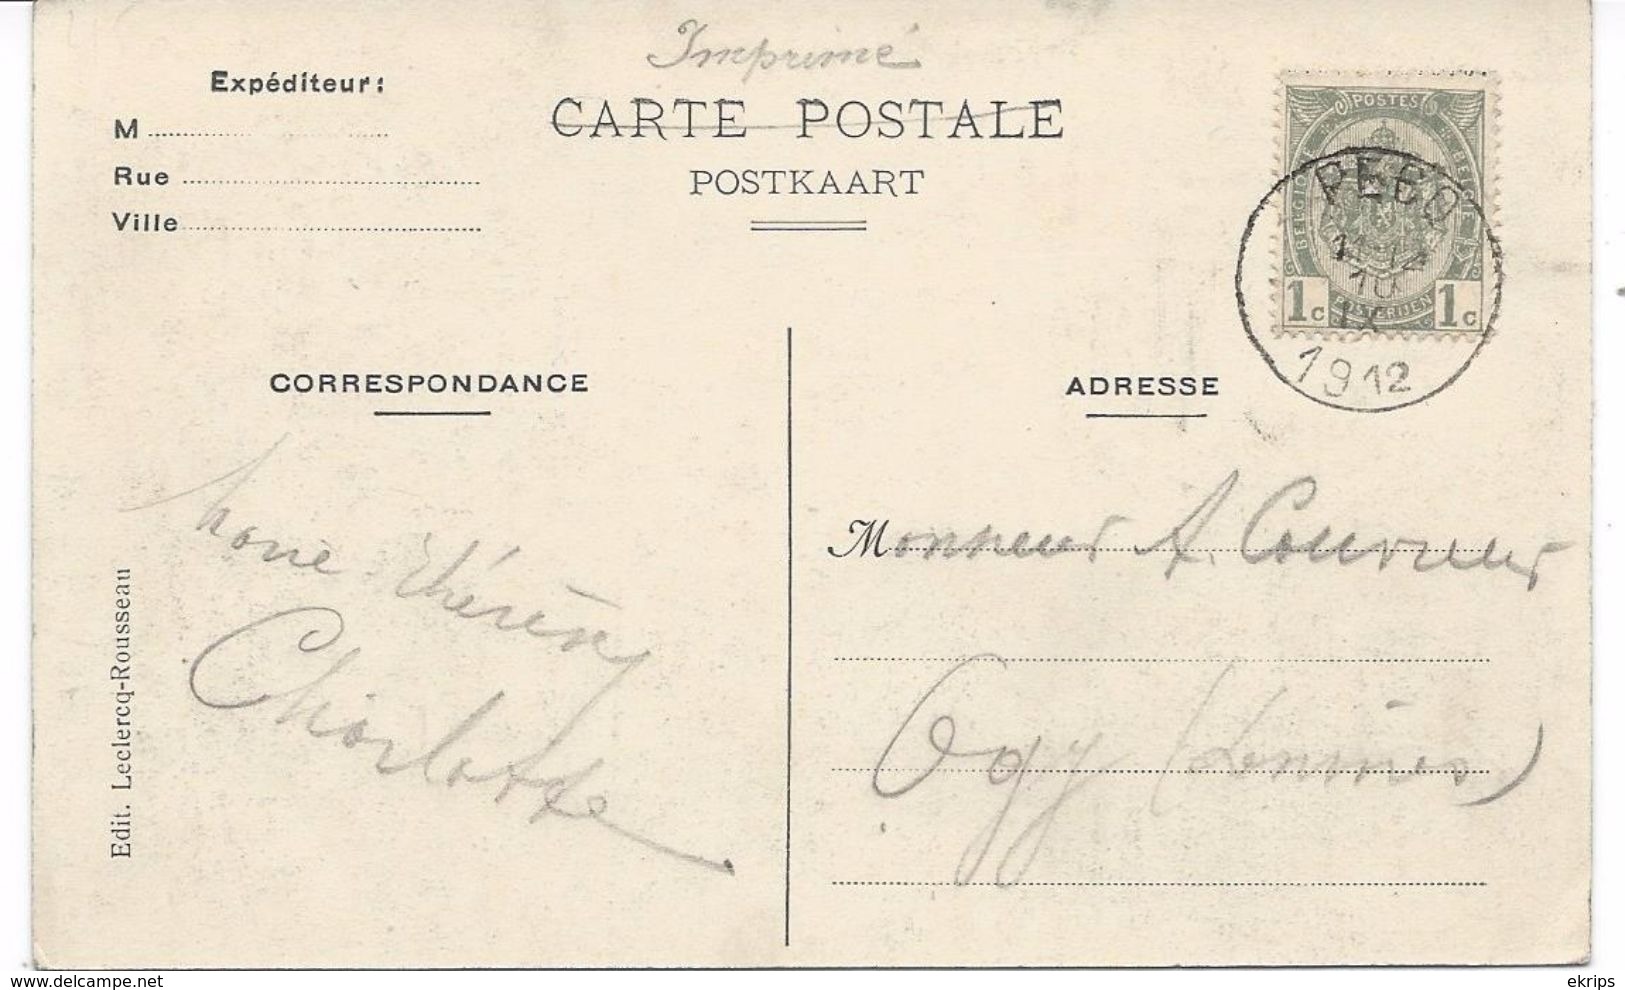 Imprimé
Expéditeur:
CARTE POSTALE
POSTKAART
M
Rue
Ville
POSTES
BELGIQUE BELGIË
POSTERIJEN
1c 1c
PECQ
11-12
10
IX
1912
CORRESPONDANCE
ADRESSE
Marie Thérèse
Charlotte
Monsieur A. Couvreur
Ogy (Lessines)
Edit. Leclercq-Rousseau
ekrips
www.delcampe.net